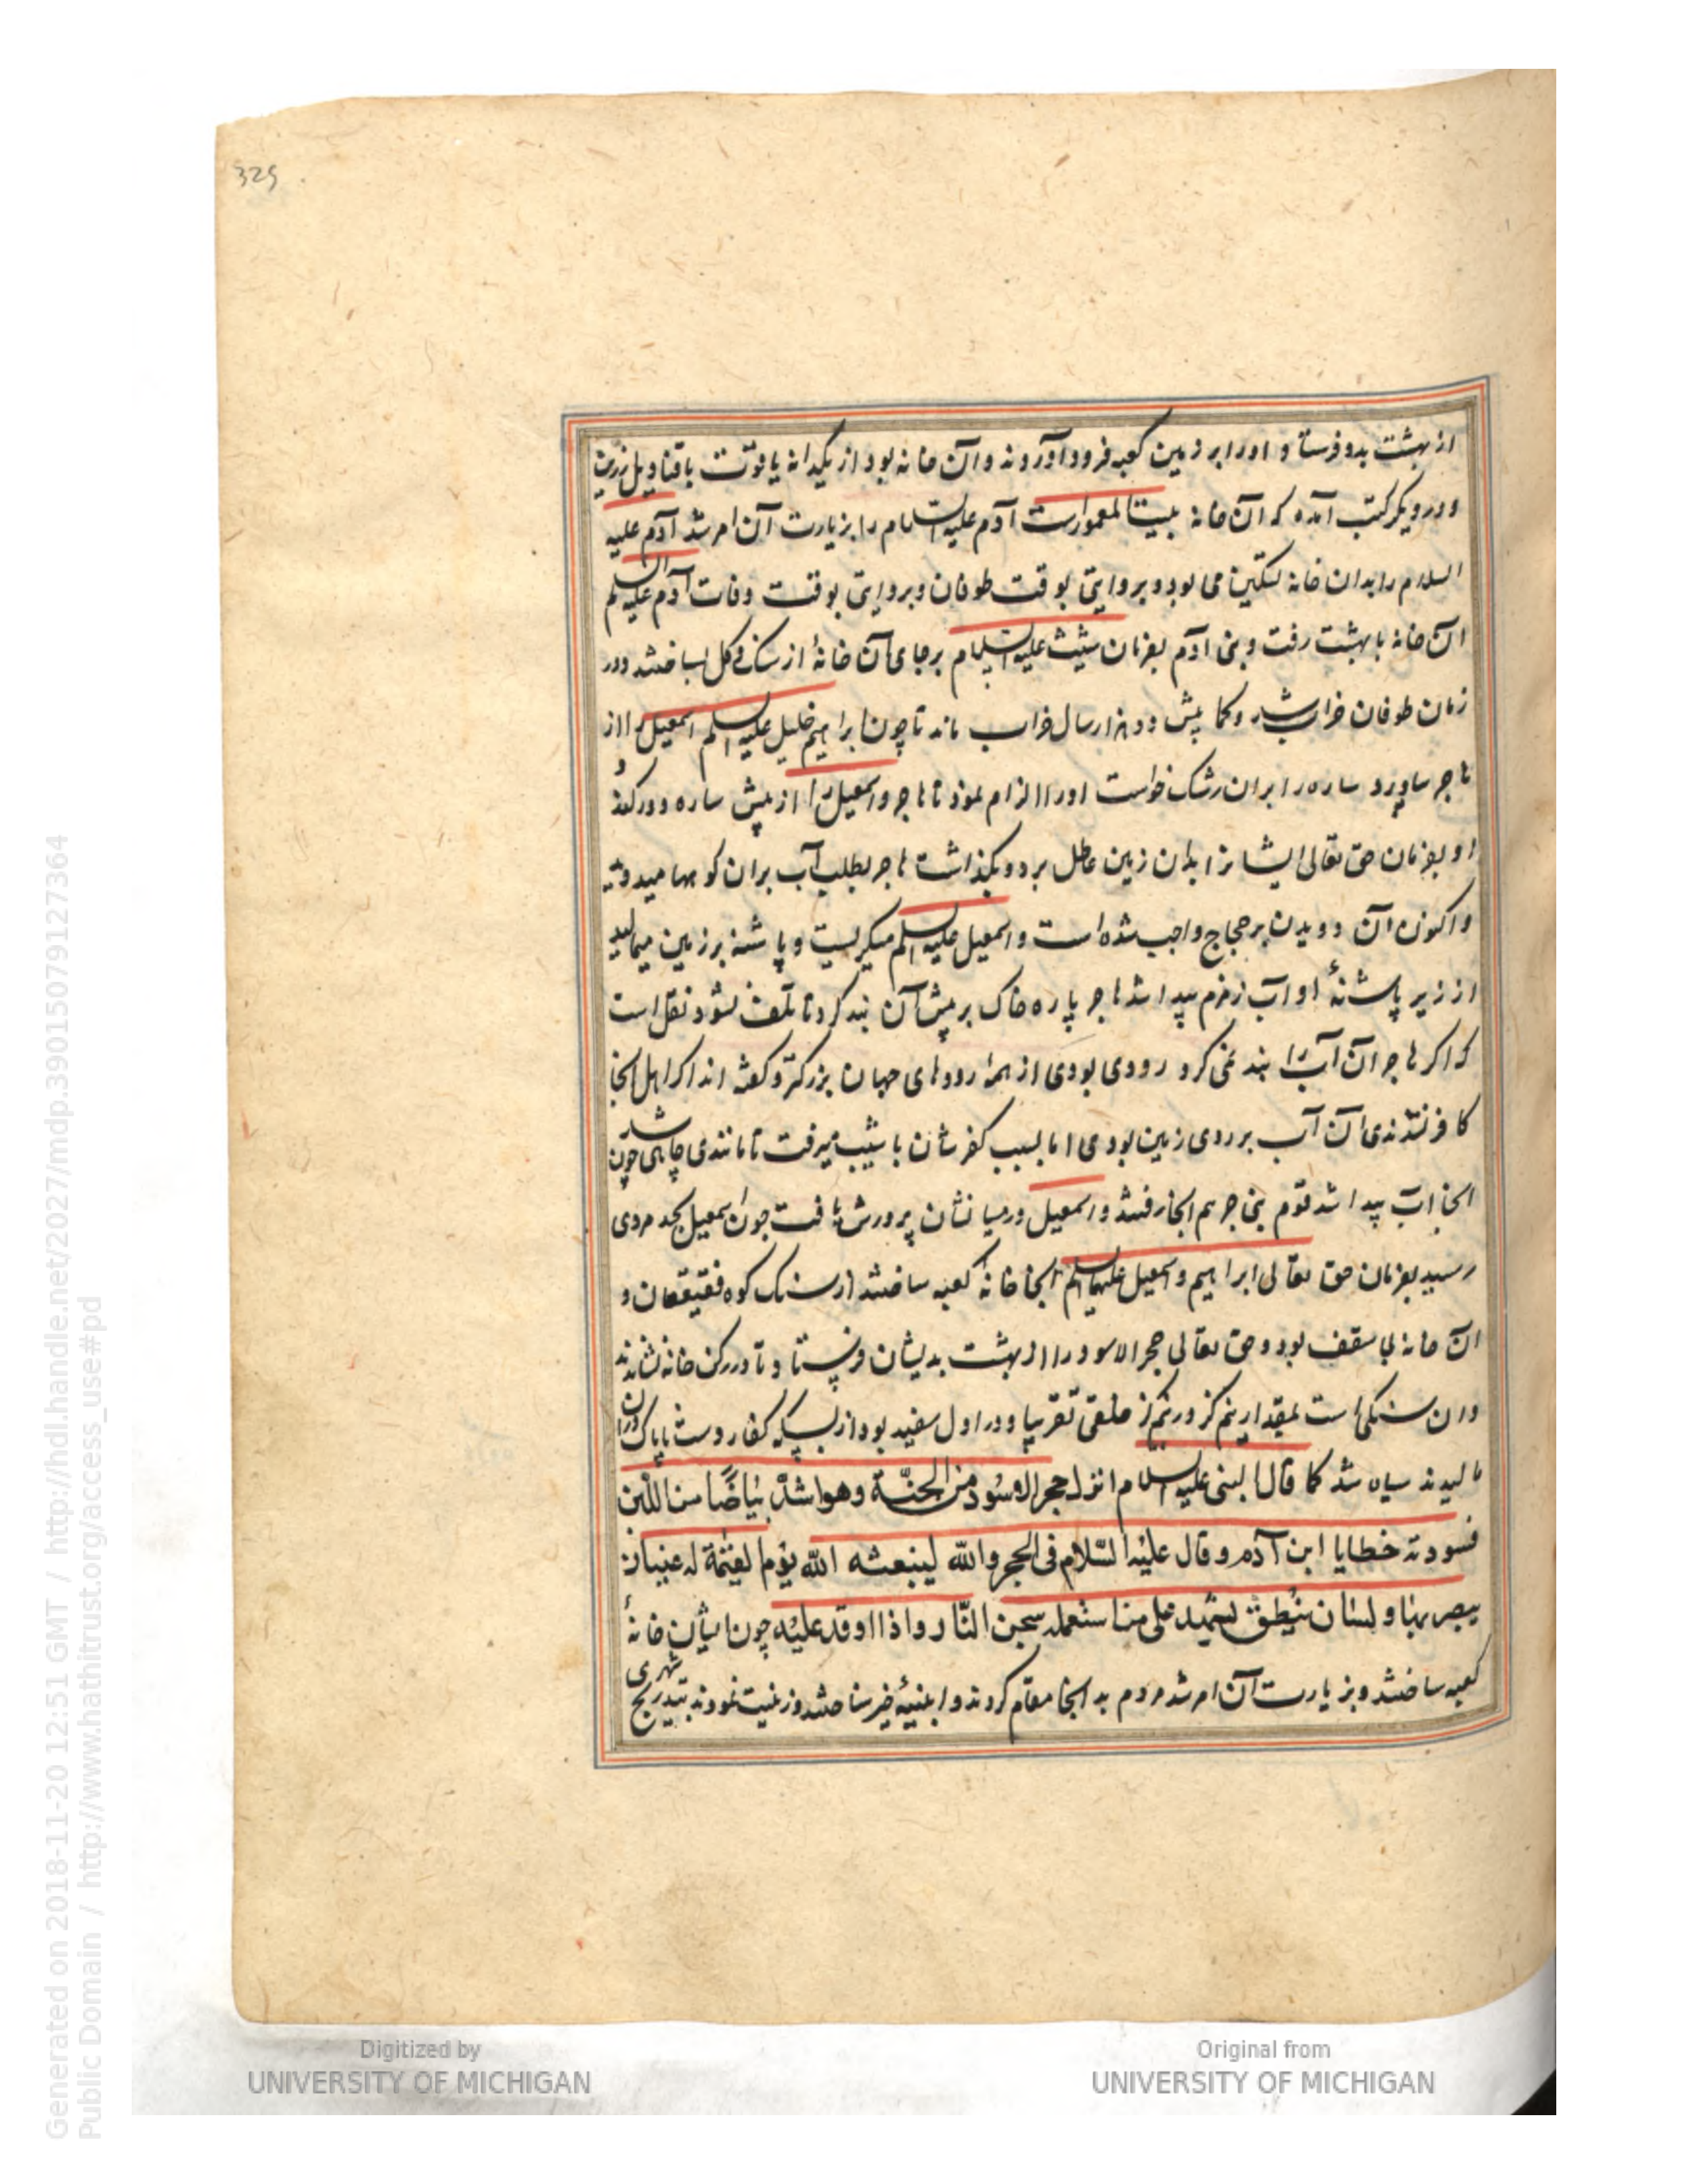 325
از بهشت بدو فرستاد و او را بر زمین کعبه فرود آوردند و آن خانه بود از یکدانه یاقوت با قنادیل زرین
و در دیگر کتب آمده که آن خانه بیت المعمور است آدم علیه السلام را بزیارت آن امر شد آدم علیه
السلام را بدان خانه تسکین می بود و بروایتی بوقت طوفان و بروایتی بوقت وفات آدم علیه السلم
آن خانه با بهشت رفت و بنی آدم بفرمان شیث علیه السلام بر جای آن خانهٔ از سنک و کل بساختند و در
زمان طوفان خراب شد و کما بیش دو هزار سال خراب ماند تا چون ابراهیم خلیل علیه السلم اسمعیل را از
هاجر بیاورد ساره را بر آن رشک خواست او را الزام نمود تا هاجر و اسمعیل را از پیش ساره دور کند و
او بفرمان حق تعالی ایشانرا بدان زمین عاطل برد و بگذاشت هاجر بطلب آب بر آن کوهها میدوید
و اکنون آن دویدن بر حجاج واجب شده است و اسمعیل علیه السلم میکریست و پاشنه بر زمین میمالید
از زیر پاشنهٔ او آب زمزم پیدا شد هاجر پاره خاک بر پیش آن بند کرد تا تلف نشود نقل است
که اکر هاجر آن آب را بند نمی کرد رودی بودی از همهٔ رودهای جهان بزرکتر و کفته اند اکر اهل آنجا
کافر نشدندی آن آب بر روی زمین بودی اما بسبب کفرشان با شیب میرفت تا مانندی چاهی شد چون
آنجا آب پیدا شد قوم بنی جرهم آنجا رفتند و اسمعیل در میانشان پرورش یافت چون اسمعیل بحد مردی
رسید بفرمان حق تعالی ابراهیم و اسمعیل علیهما السلم آنجا خانهٔ کعبه ساختند از سنک کوه قعیقعان و
آن خانه بی سقف بود و حق تعالی حجر الاسود را از بهشت بدیشان فرستاد تا در رکن خانه نشاندند
و آن سنکی است بمقدار نیم کز در نیم کز حلقی تقریبا و در اول سفید بود از بسکه کفار دست ناپاک در آن
مالیدند سیاه شد کما قال النبی علیه السلام انزل حجر الاسود من الجنّة وهو اشدّ بیاضًا من اللّبن
فسودته خطایا ابن آدم وقال علیه السّلام فی الحجر والله لیبعثه الله یوم القیٰمة له عینان
یبصر بهما ولسان ینطق یشهد علی من استعمله سجین النّار واذا اوقد علیه چون ایشان خانهٔ
کعبه ساختند و بزیارت آن امر شد مردم بد آنجا مقام کردند و ابنیهٔ خیر ساختند و زینت نمودند بتدریج شهری
Generated on 2018-11-20 12:51 GMT / http://hdl.handle.net/2027/mdp.39015079127364
Public Domain / http://www.hathitrust.org/access_use#pd
Digitized by
UNIVERSITY OF MICHIGAN
Original from
UNIVERSITY OF MICHIGAN